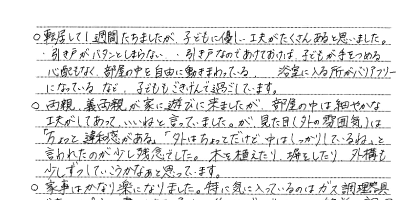 ○転居して1週間たちましたが、子どもに優しい工夫がたくさんあると思いました。
・引き戸がバタンとしまらない ・引き戸なのであけておけば、子どもが手をつめる
心配もなく、部屋の中を自由に動きまわっている、 浴室に入る所がバリアフリー
になっている など、子どももごきげんで過ごしています。
○両親、義両親が家に遊びに来ましたが、部屋の中は細やかな
工夫がしてあって、いいねと言っていました。が、見た目(外の雰囲気)は
「ちょっと違和感がある。」「外はちょっとだけど中はしっかりしているね。」と
言われたのが少し残念でした。木を植えたり、塀をしたり、外構も
少しずつしていこうかなぁと思っています。
○家事はかなり楽になりました。特に気に入っているのはガス調理器具